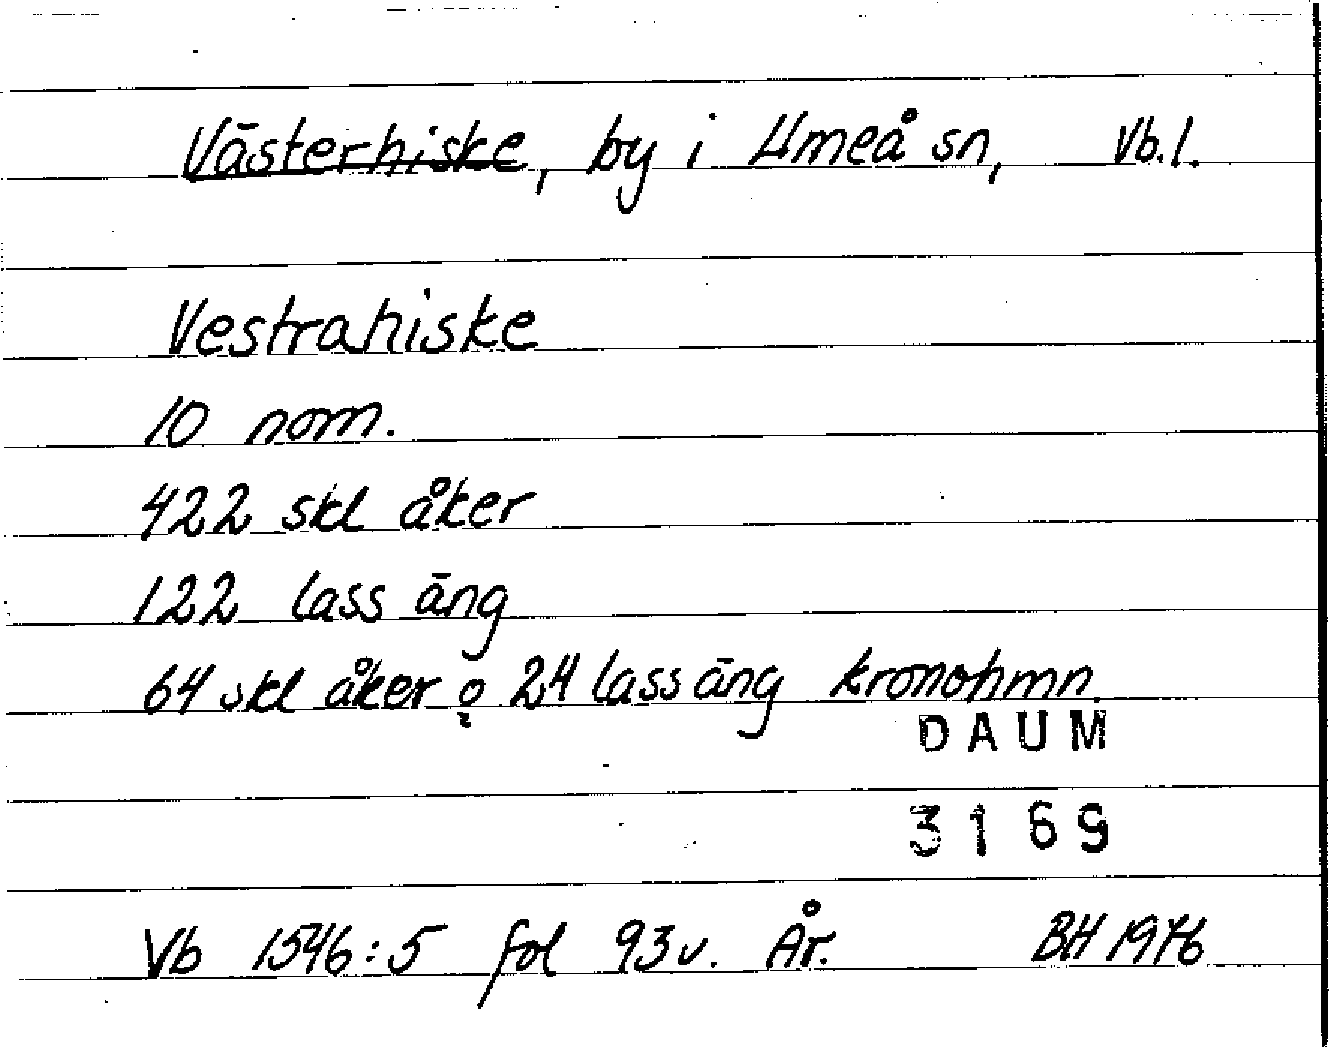 Västerhiske, by i Umeå sn, Vb.l.
Vestrahiske
10 nom.
422 skl åker
122 lass äng
64 skl åker o 24 lass äng kronohmn.
DAUM
3169
Vb 1546:5 fol 93v. År. BH 1976